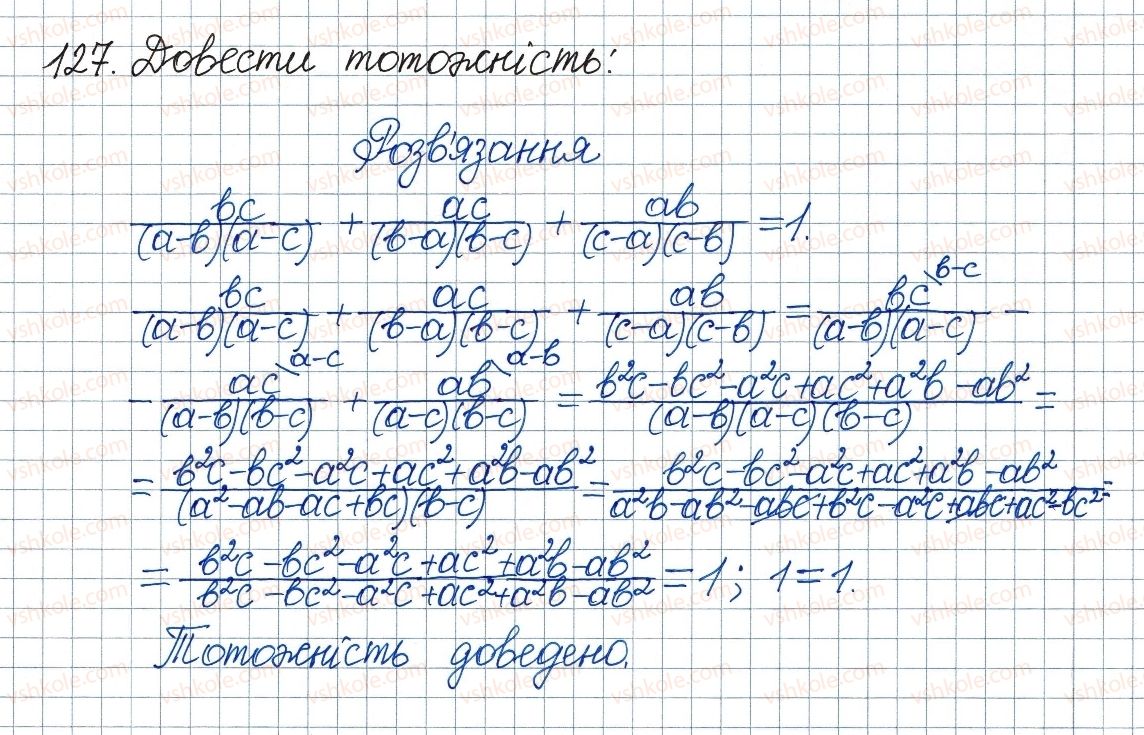 127. Довести тотожність:
Розв'язання
\frac{bc}{(a-b)(a-c)} + \frac{ac}{(b-a)(b-c)} + \frac{ab}{(c-a)(c-b)} = 1.
\frac{bc}{(a-b)(a-c)} + \frac{ac}{(b-a)(b-c)} + \frac{ab}{(c-a)(c-b)} = \frac{bc^{\backslash b-c}}{(a-b)(a-c)} -
- \frac{ac^{\backslash a-c}}{(a-b)(b-c)} + \frac{ab^{\backslash a-b}}{(a-c)(b-c)} = \frac{b^2c-bc^2-a^2c+ac^2+a^2b-ab^2}{(a-b)(a-c)(b-c)} =
= \frac{b^2c-bc^2-a^2c+ac^2+a^2b-ab^2}{(a^2-ab-ac+bc)(b-c)} = \frac{b^2c-bc^2-a^2c+ac^2+a^2b-ab^2}{a^2b-ab^2-abc+b^2c-a^2c+abc+ac^2-bc^2} =
= \frac{b^2c-bc^2-a^2c+ac^2+a^2b-ab^2}{b^2c-bc^2-a^2c+ac^2+a^2b-ab^2} = 1; 1=1.
Тотожність доведено.
vshkole.com